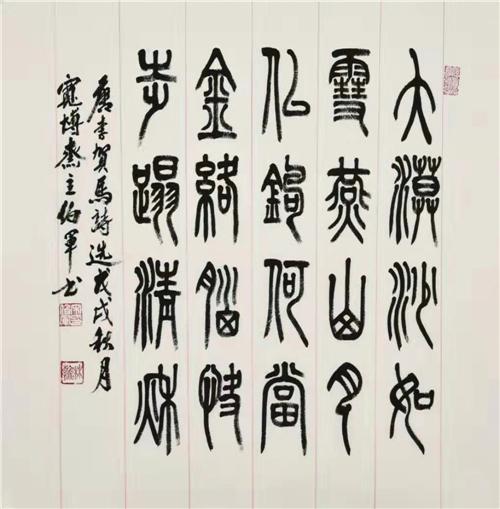 大漠沙如
雪燕山月
似鉤何當
金絡腦快
走蹋清秋
唐李賀馬詩选戊戌秋月
博齋主伯軍书